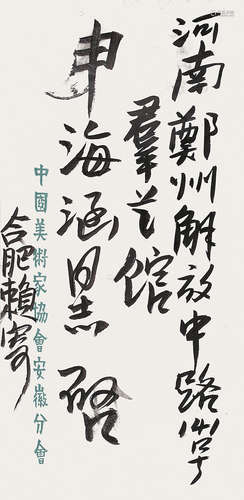 河南鄭州解放中路141号
羣艺館
申海涵同志 啓
中國美術家協會安徽分會
合肥賴寄